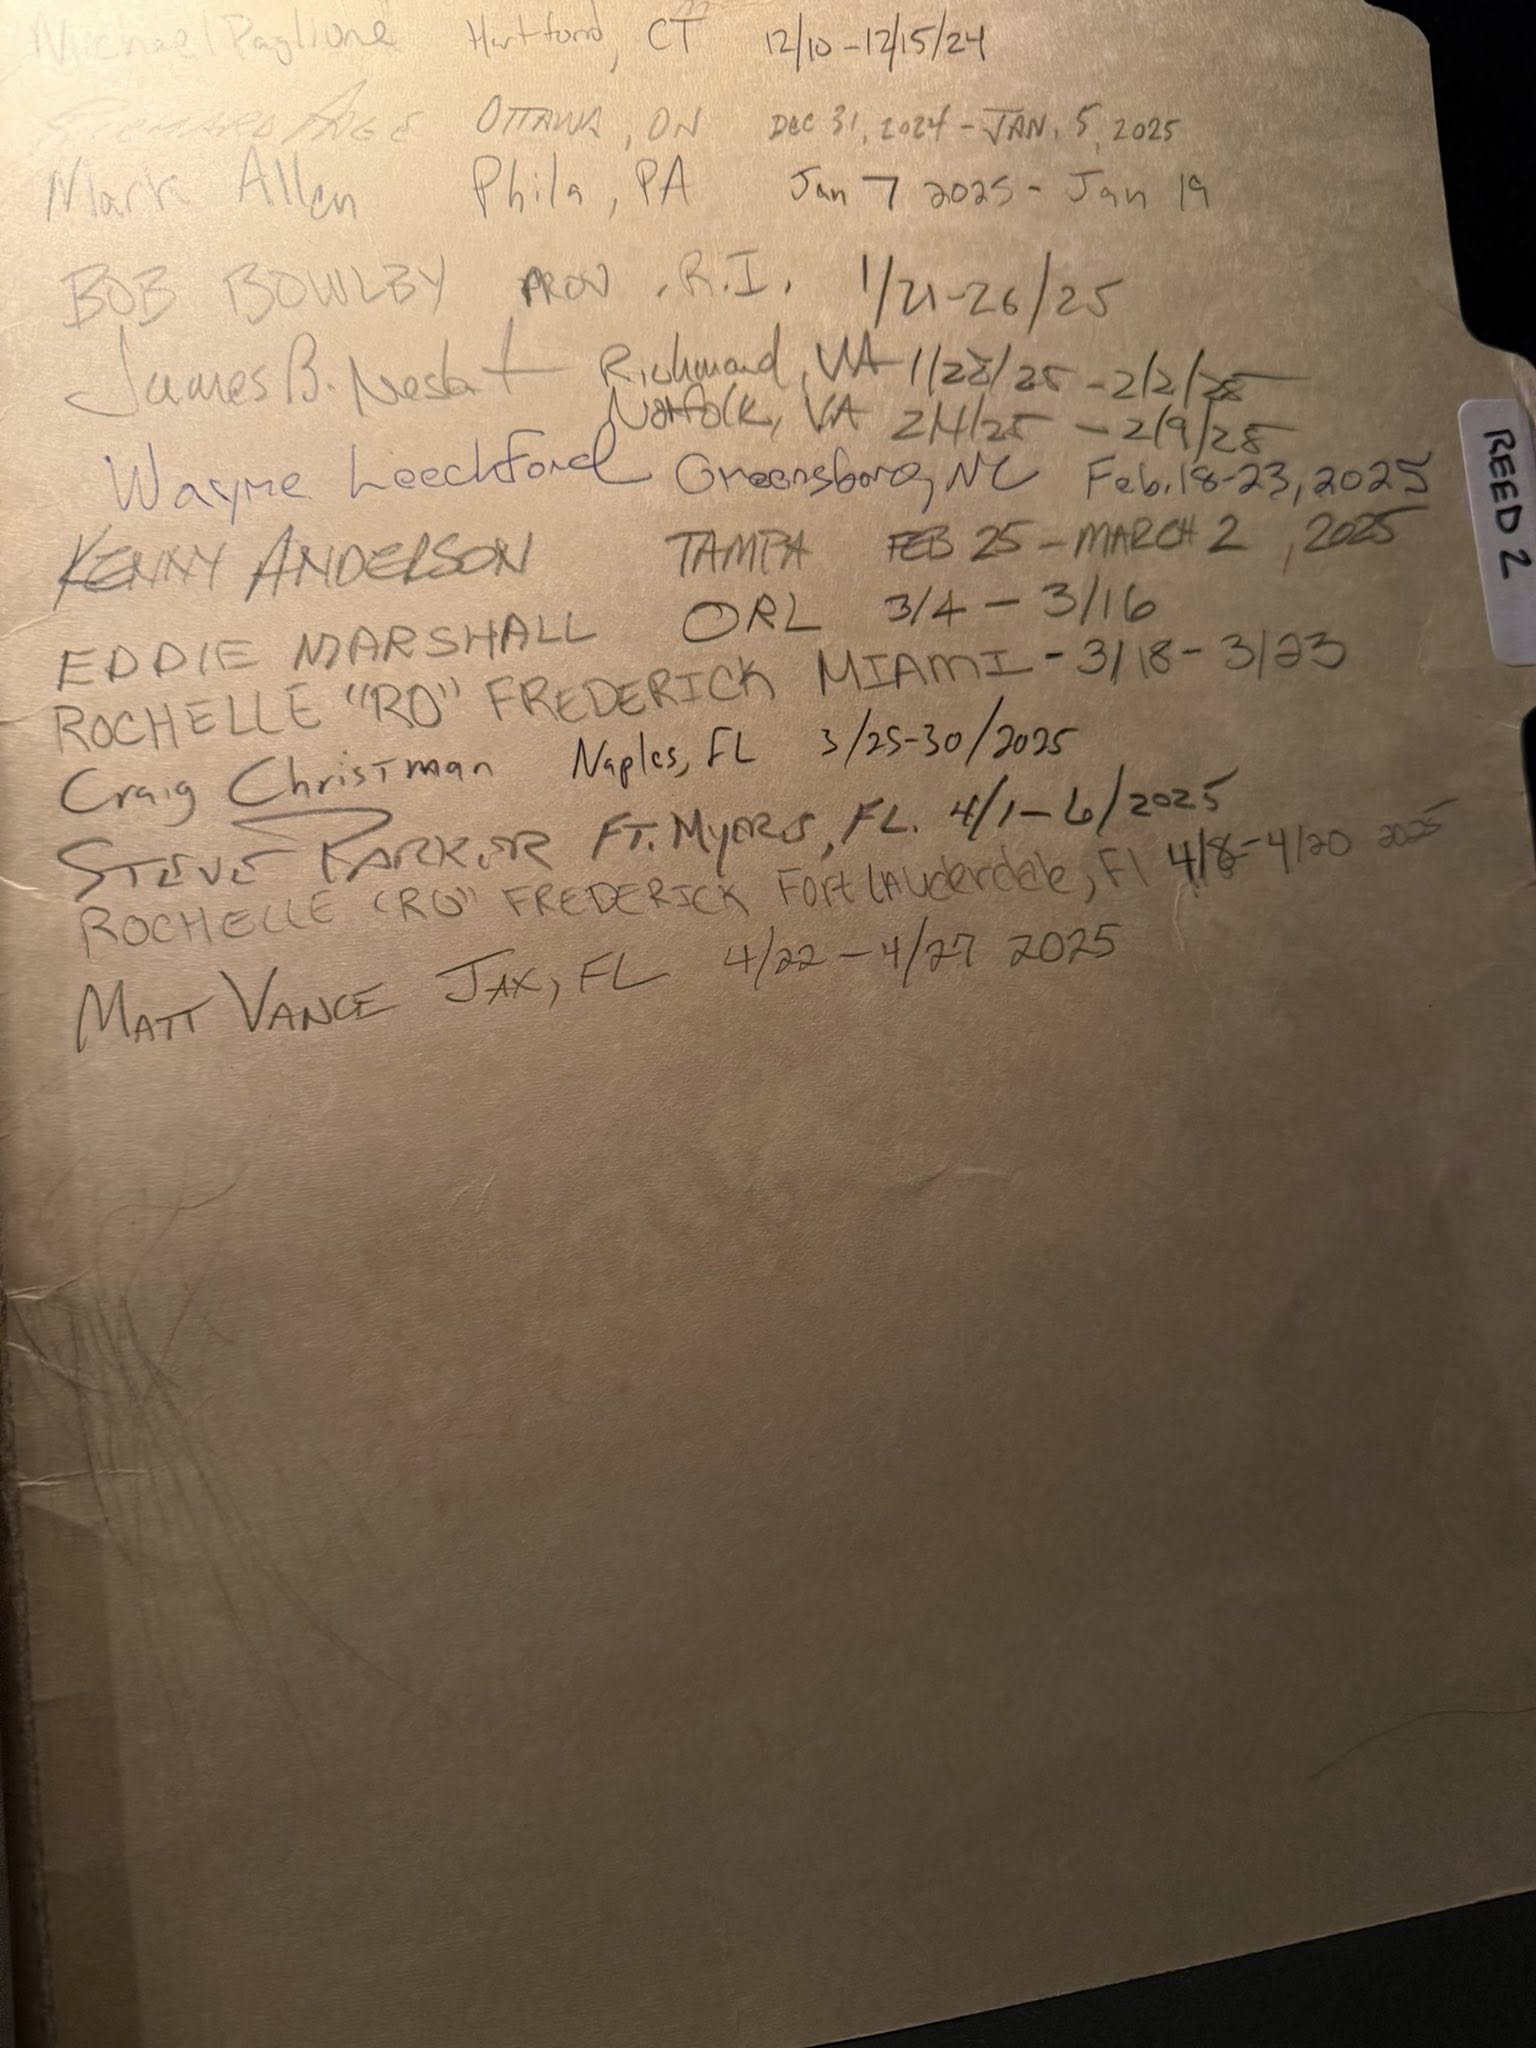 Michael Paglione Hartford, CT 12/10-12/15/24
PAGE OTTAWA, ON DEC 31, 2024 - JAN. 5, 2025
Mark Allen Phila, PA Jan 7 2025 - Jan 19
BOB BOWLBY PROV. R.I. 1/21-26/25
James B. Nesbit Richmond, VA 1/28/25 - 2/2/25
Norfolk, VA 2/4/25 - 2/9/25
Wayne Leechford Greensboro, NC Feb. 18-23, 2025
KENNY ANDERSON TAMPA FEB 25 - MARCH 2, 2025
EDDIE MARSHALL ORL 3/4 - 3/16
ROCHELLE "RO" FREDERICK MIAMI - 3/18 - 3/23
Craig Christman Naples, FL 3/25-30/2025
STEVE PARKER FT. MYERS, FL. 4/1-6/2025
ROCHELLE "RO" FREDERICK Fort LAuderdale, Fl 4/8-4/20 2025
MATT VANCE JAX, FL 4/22 - 4/27 2025
REED 2